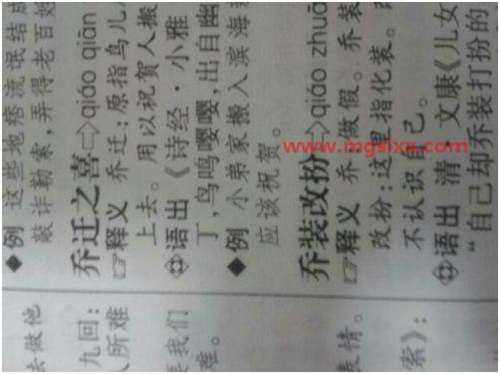 例 这些地痞流氓结成
敲诈勒索，弄得老百姓
乔迁之喜⇨qiáo qiān
☞释义 乔迁：原指鸟儿
上去。用以祝贺人搬
语出 《诗经·小雅
丁，鸟鸣嘤嘤，出自幽
◆例 小弟家搬入滨海
应该祝贺。
乔装改扮⇨qiáo zhuā
☞释义 乔：做假。乔装
改扮：这里指化装。
不认识自己。
语出 清 文康《儿女
“自己却乔装打扮的
去做他
九回：
人所难
我们
难。
表情。
索》：
www.mgslxx.com